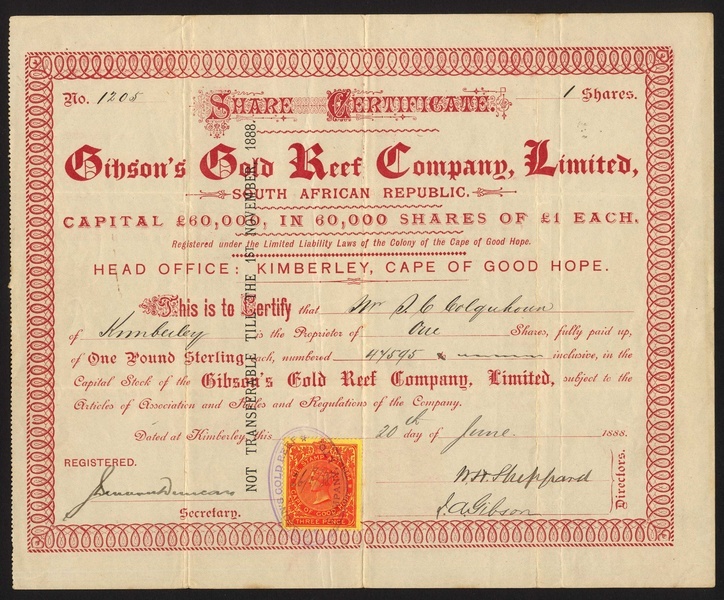 No. 1205 1 Shares.
SHARE CERTIFICATE.
Gibson's Gold Reef Company, Limited,
SOUTH AFRICAN REPUBLIC.
CAPITAL £60,000, IN 60,000 SHARES OF £1 EACH.
Registered under the Limited Liability Laws of the Colony of the Cape of Good Hope.
HEAD OFFICE: KIMBERLEY, CAPE OF GOOD HOPE.
This is to Certify that Mr Colquhoun
of Kimberley is the Proprietor of One Shares, fully paid up,
of One Pound Sterling each, numbered 47595 inclusive, in the
Capital Stock of the Gibson's Gold Reef Company, Limited, subject to the
Articles of Association and Rules and Regulations of the Company.
Dated at Kimberley this 20th day of June 1888.
NOT TRANSFERABLE TILL THE 1ST NOVEMBER 1888.
REGISTERED.
Duncan
Secretary.
STAMP
CAPE OF GOOD
THREE PENCE
GOLD REEF
W. H. Sheppard
J. A. Gibson
Directors.